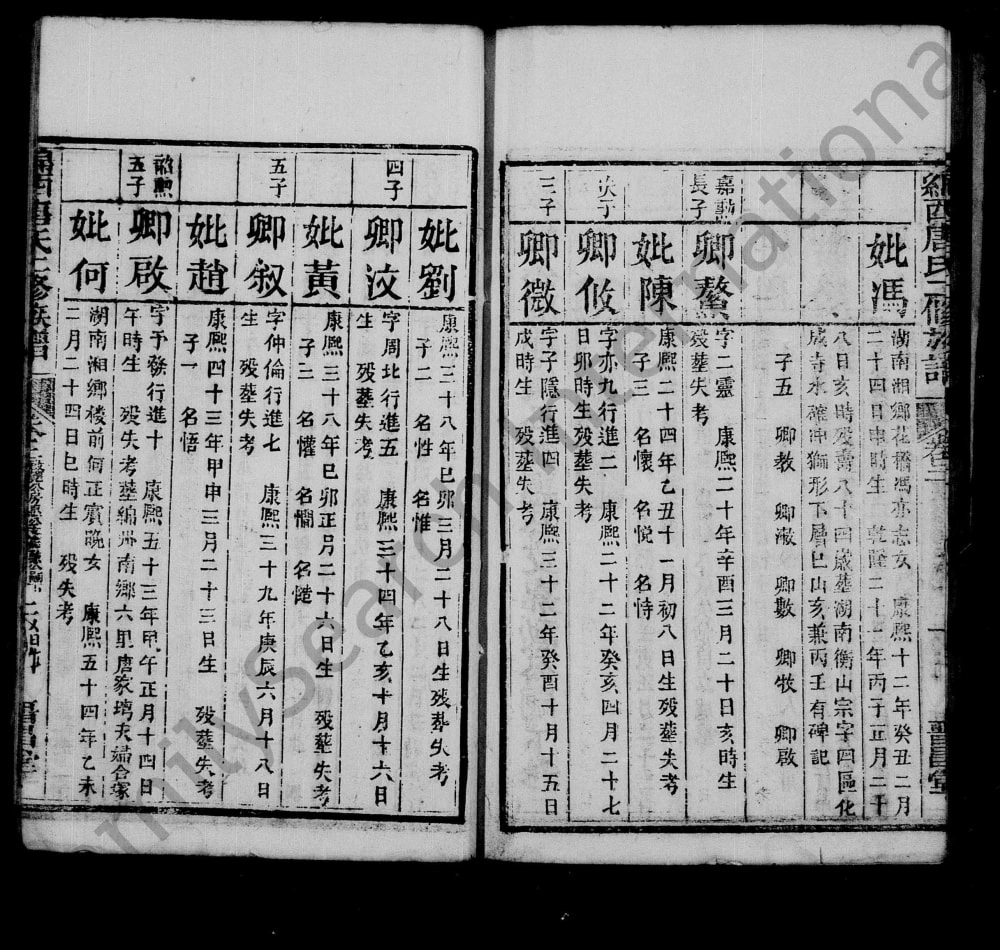 綿西唐氏二修族譜
晋昌堂
妣馮
湖南湘鄉花橋馮亦志女 康熙十二年癸丑二月
二十四日申時生 乾隆二十一年丙子正月二十
八日亥時歿壽八十四歲葬湖南衡山宗字四區化
成寺水碓冲獅形下層巳山亥兼丙壬有碑記
子五 卿教 卿敲 卿數 卿牧 卿啟
嘉勲長子
卿鰲
字二靈 康熙二十年辛酉三月二十日亥時生
歿葬失考
妣陳
康熙二十四年乙丑十一月初八日生歿葬失考
子三 名懷 名悅 名恃
次子
卿攸
字亦九行進二 康熙二十二年癸亥四月二十七
日卯時生歿葬失考
三子
卿微
字子隱行進四 康熙三十二年癸酉十月十五日
戌時生 歿葬失考
妣劉
康熙三十八年己卯三月二十八日生歿葬失考
子二 名性 名惟
四子
卿汶
字周北行進五 康熙三十四年乙亥十月十六日
生 歿葬失考
妣黃
康熙三十八年己卯正月二十六日生 歿葬失考
子三 名懽 名憪
五子
卿叙
字仲倫行進七 康熙三十九年庚辰六月十八日
生 歿葬失考
妣趙
康熙四十三年甲申三月二十三日生 歿葬失考
子一 名悟
韶熙五子
卿啟
字予發行進十 康熙五十三年甲午正月十四日
午時生 歿失考葬綿州南鄉六里唐家塆夫婦合塚
妣何
湖南湘鄉棱前何正賓晚女 康熙五十四年乙未
二月二十四日巳時生 歿失考
綿西唐氏二修族譜
晋昌堂
FamilySearch International